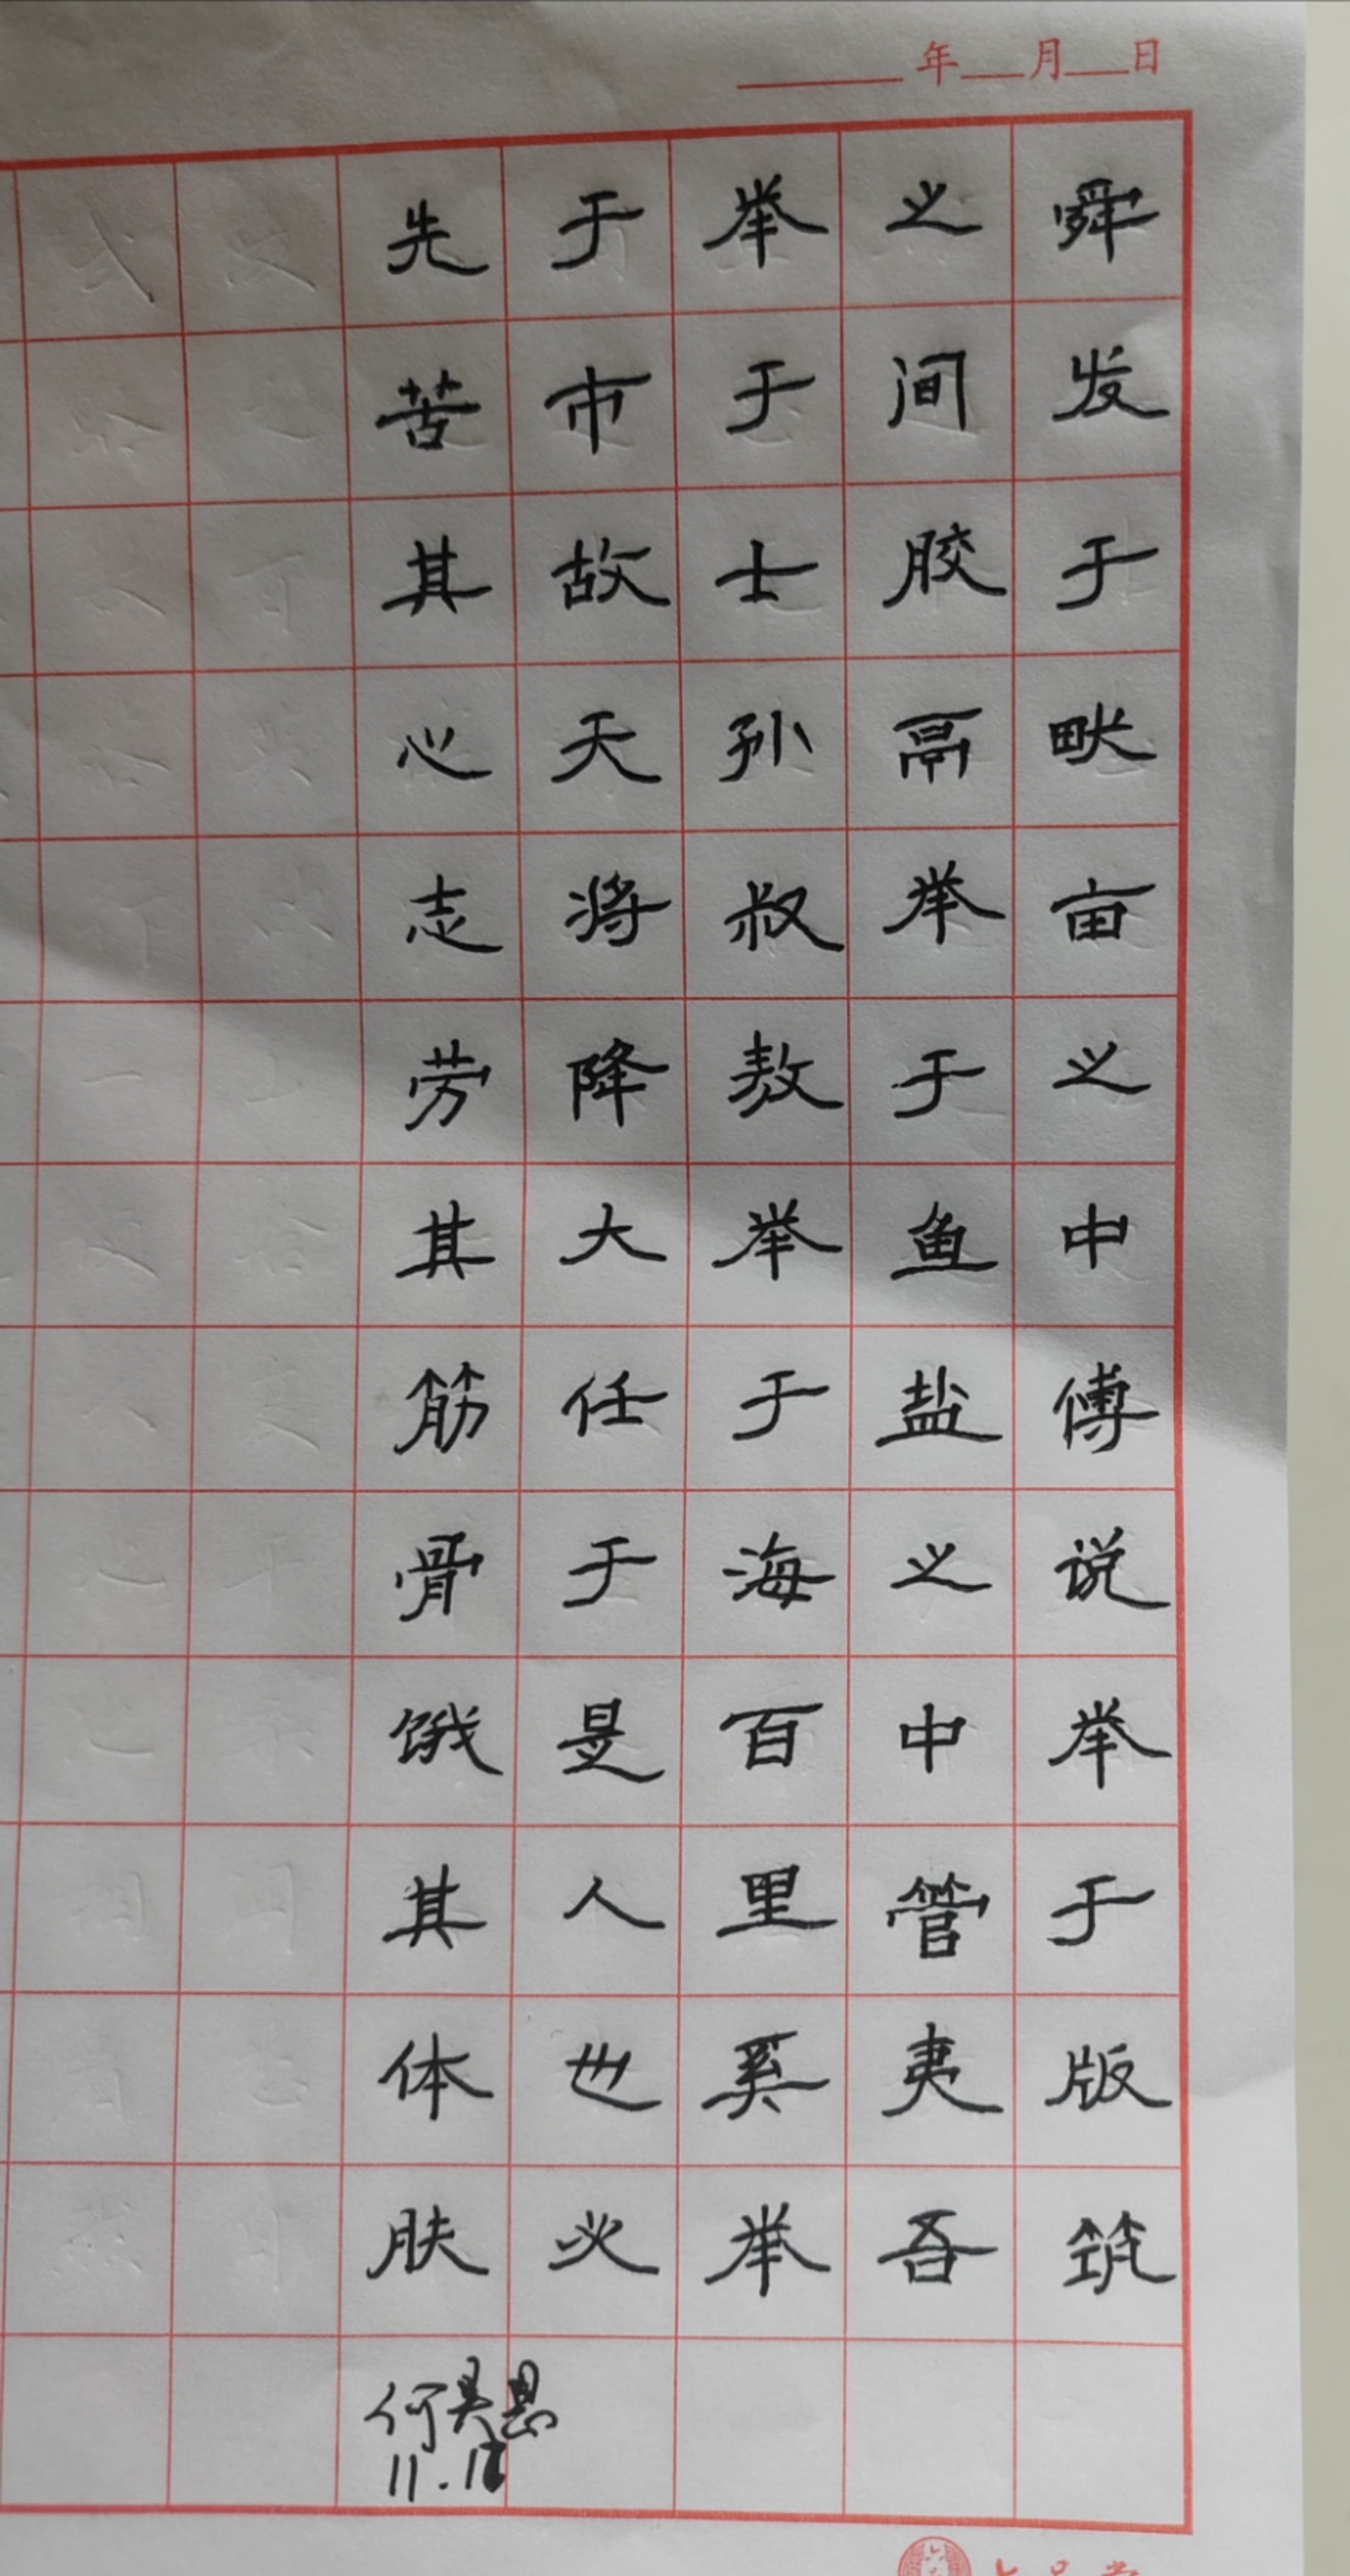 年 月 日
舜发于畎亩之中傅说举于版筑
之间胶鬲举于鱼盐之中管夷吾
举于士孙叔敖举于海百里奚举
于市故天将降大任于是人也必
先苦其心志劳其筋骨饿其体肤
何昊恩